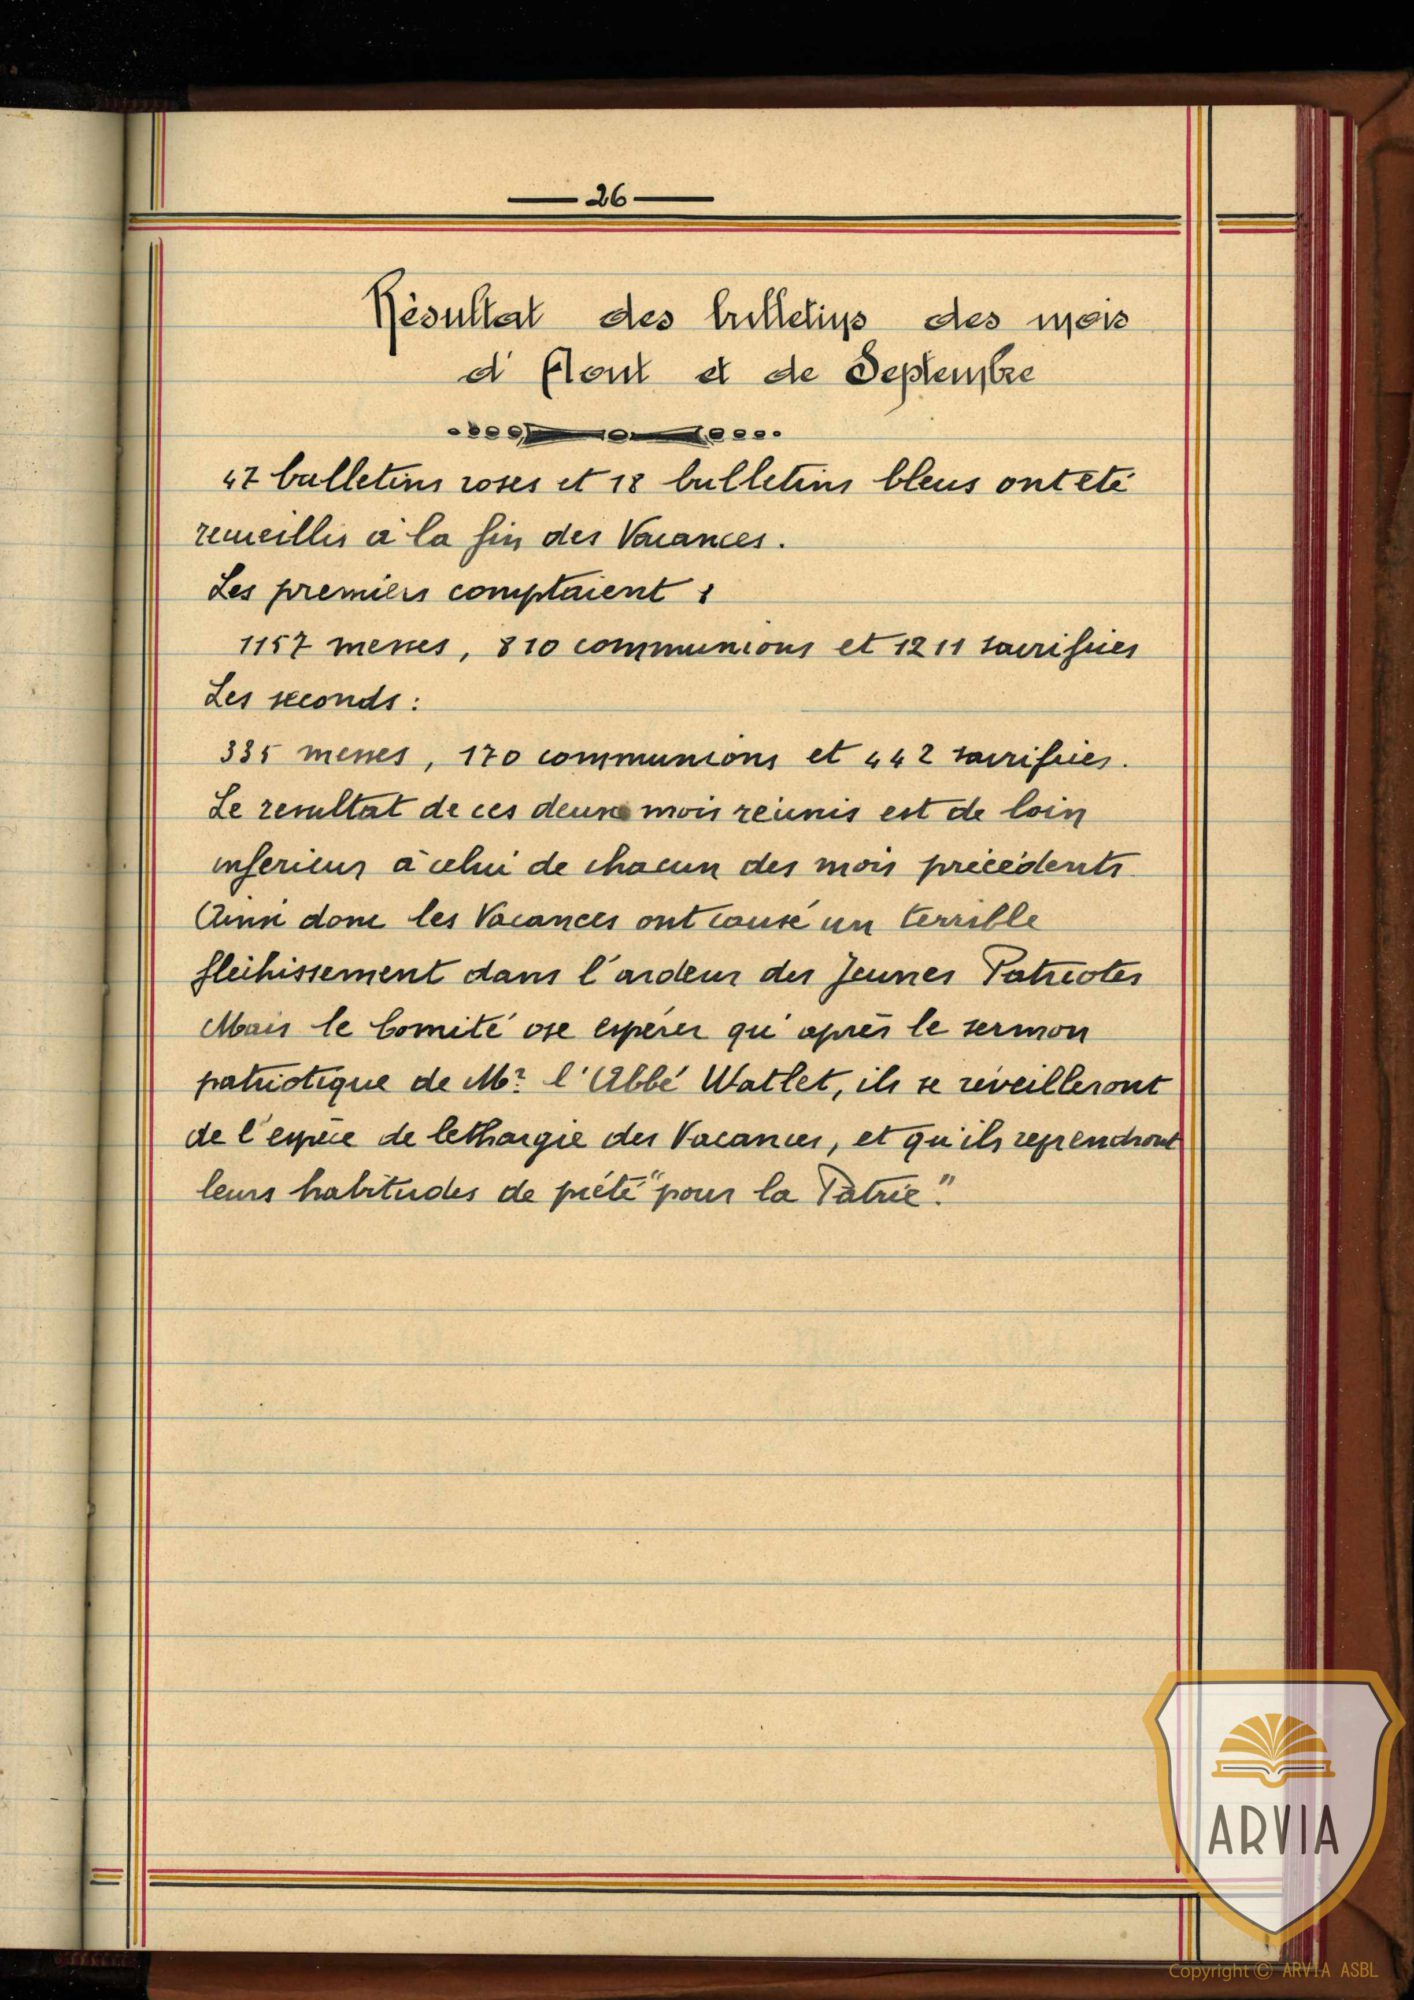 26
Résultat des bulletins des mois
d'Aout et de Septembre
47 bulletins roses et 18 bulletins bleus ont été
recueillis à la fin des Vacances.
Les premiers comptaient :
1157 messes, 810 communions et 1211 sacrifices
Les seconds :
335 messes, 170 communions et 442 sacrifices.
Le resultat de ces deux mois réunis est de loin
inferieur à celui de chacun des mois précédents
Ainsi donc les Vacances ont causé un terrible
fléchissement dans l'ardeur des Jeunes Patriotes
Mais le Comité ose espérer qu'après le sermon
patriotique de Mr l'Abbé Watlet, ils se réveilleront
de l'espèce de lethargie des Vacances, et qu'ils reprendront
leurs habitudes de piété "pour la Patrie".
ARVIA
Copyright © ARVIA ASBL